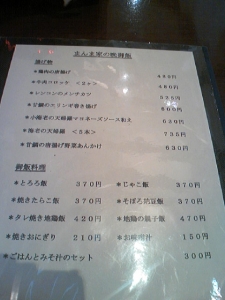 まんま家の晩御飯
揚げ物
*鶏肉の唐揚げ
*牛肉コロッケ <2ケ> 480円
*レンコンのメンチカツ 580円
*甘鯛のスリシギ巻き揚げ 600円
*小海老の天婦羅マヨネーズソース和え 629円
*海老の天婦羅 <5本> 735円
*甘鯛の唐揚げ野菜あんかけ 630円
御飯料理
*とろろ飯 370円 *じゃこ飯 370円
*焼きたらこ飯 370円 *そぼろ納豆飯 370円
*タレ焼き地鶏飯 420円 *地鶏の親子飯 470円
*焼きおにぎり 210円 *お味噌汁 150円
*ごはんとみそ汁のセット 300円